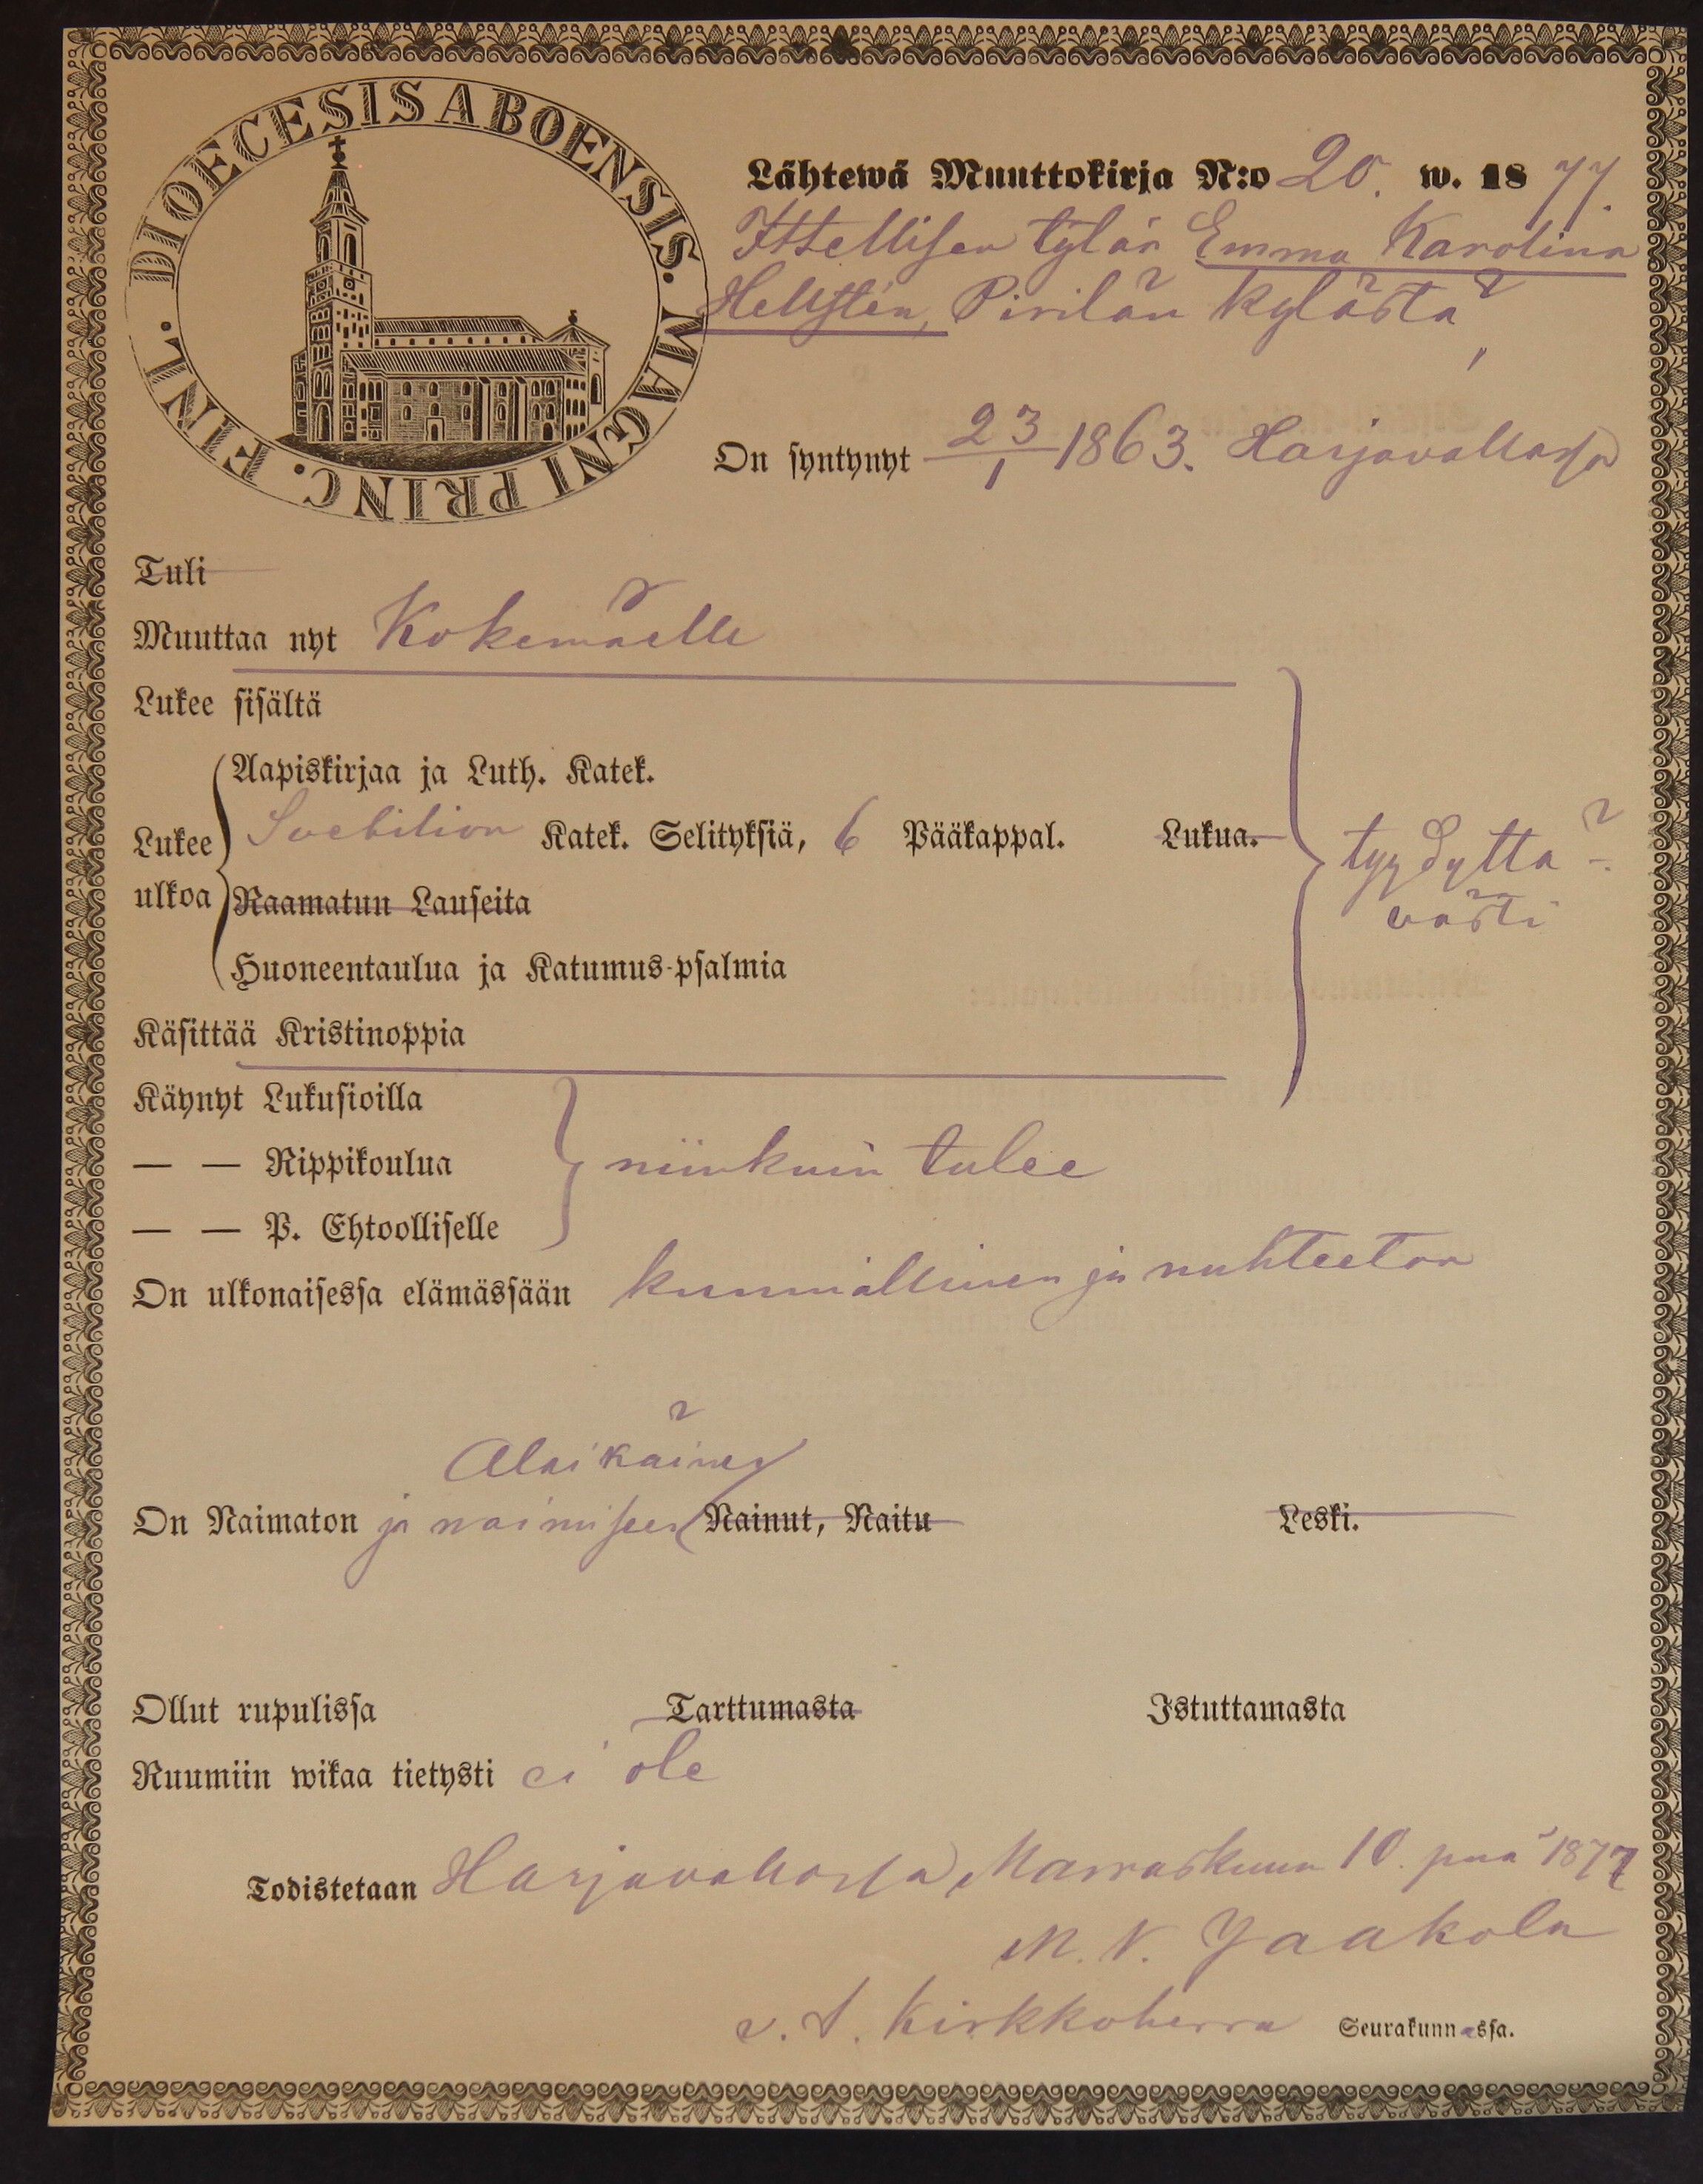 DIOECESIS ABOENSIS. MAGNI PRINC. FINL.
Lähtewä Muuttokirja N:o 20. w. 1877.
Ittellisen tytär Emma Karolina
Hellstén, Pirilän kylästä,
On syntynyt 23/1 1863. Harjavallassa
Tuli
Muuttaa nyt Kokemäelle
Lukee sisältä
Aapiskirjaa ja Luth. Katek.
Lukee ulkoa Svebilion Katek. Selityksiä, 6 Pääkappal. Lukua.
tyydyttä-
västi
Raamatun Lauseita
Huoneentaulua ja Katumus-psalmia
Käsittää Kristinoppia
Käynyt Lukusioilla
— — Rippikoulua niinkuin tulee
— — P. Ehtoolliselle
On ulkonaisessa elämässään kunniallinen ja nuhteeton
Alaikäinen
On Naimaton ja naimiseen Nainut, Naitu Leski.
Ollut rupulissa Tarttumasta Istuttamasta
Ruumiin wikaa tietysti ei ole
Todistetaan Harjavallassa Marraskuun 10. pnä 1877
M. V. Jaakola
v. t. Kirkkoherra Seurakunnassa.